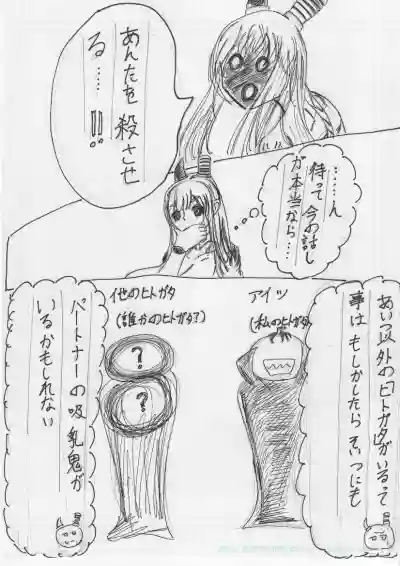 あんたを殺させ
る……!!
……ん
待って今の話し
が本当なら…
アイツ
(私のヒトガタ)
他のヒトガタ
(誰かのヒトガタ?)
?
?
あいつ以外の「ヒトガタ」がいるって
事はもしかしたらそいつにも
パートナーの吸乳鬼が
いるかもしれない